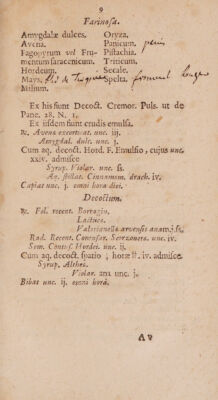 9
Farinosa.
Amygdalæ dulces. Oryza.
Avena. Panicum.
Fagopyrum vel Fru- Pistachia.
mentum saracenicum. Triticum.
Hordeum. Secale.
Mays. Spelta.
Milium.
Ex his fiunt Decoct. Cremor. Puls. ut de
Pane. 28. N. 1.
Ex iisdem fiunt crudis emulsa.
℞. Avenæ excorticat. unc. iij.
Amygdal. dulc. unc. j.
Cum aq. decoct. Hord. F. Emulsio, cujus unc.
xxiv. admisce
Syrup. Violar. unc. ss.
Aq. stillat. Cinnamom. drach. iv.
Capiat unc. j. omni hora diei.
Decoctum.
℞. Fol. recent. Borragin.
Lactucæ.
Valerianellæ arvensis ana m. j. ss.
Rad. Recent. Concisar. Scorzoneræ. unc. iv.
Sem. Contus. Hordei. unc. ij.
Cum aq. decoct. spatio ½ horæ ℔. iv. admisce.
Syrup. Altheæ.
Violar. ana unc. j.
Bibat unc. ij. omni horâ.